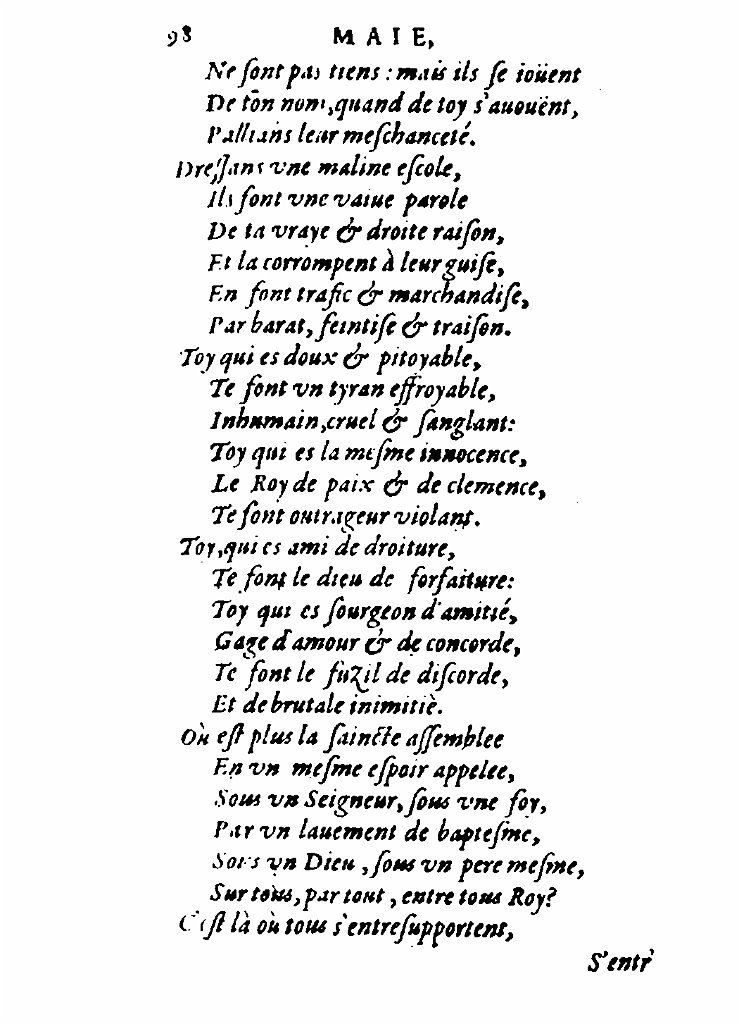 98 MAIE,
Ne ſont pas tiens : mais ils ſe ioüent
De tõn nom, quand de toy s'auouënt,
Pallians leur meſchanceté.
Dreſſans vne maline eſcole,
Ils font vne vaine parole
De ta vraye & droite raiſon,
Et la corrompent à leur guiſe,
En font trafic & marchandiſe,
Par barat, feintiſe & traiſon.
Toy qui es doux & pitoyable,
Te font vn tyran effroyable,
Inhumain, cruel & ſanglant:
Toy qui es la meſme innocence,
Le Roy de paix & de clemence,
Te font outrageur violant.
Toy, qui es ami de droiture,
Te font le dieu de forfaiture:
Toy qui es ſourgeon d'amitié,
Gage d'amour & de concorde,
Te font le fuzil de diſcorde,
Et de brutale inimitiè.
Où eſt plus la ſaincte aſſemblee
En vn meſme eſpoir appelee,
Sous vn Seigneur, ſous vne foy,
Par vn lauement de bapteſme,
Sous vn Dieu, ſous vn pere meſme,
Sur tous, par tout, entre tous Roy?
C'eſt là où tous s'entreſupportent,
S'entr'